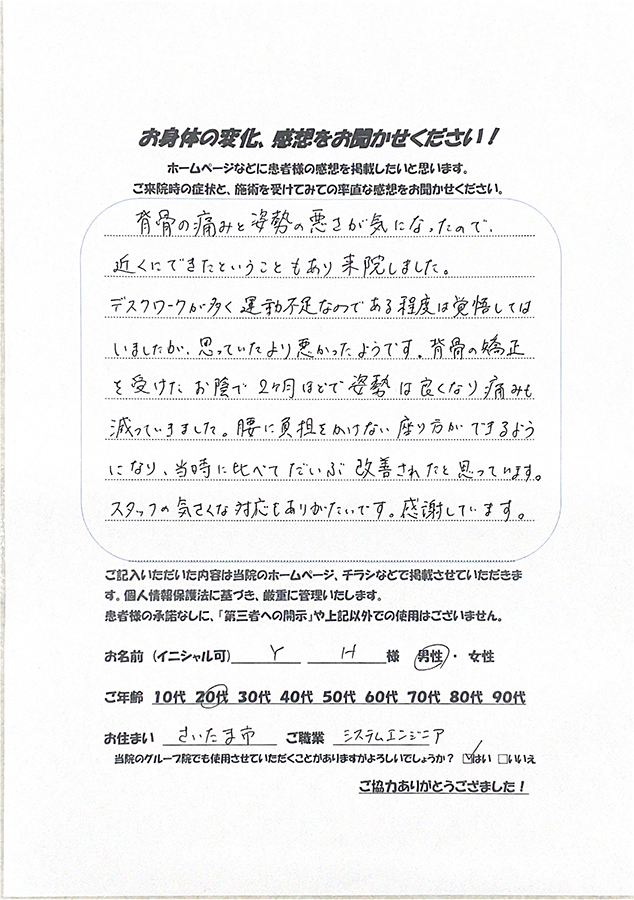 お身体の変化、感想をお聞かせください！
ホームページなどに患者様の感想を掲載したいと思います。
ご来院時の症状と、施術を受けてみての率直な感想をお聞かせください。
背骨の痛みと姿勢の悪さが気になったので、
近くにできたということもあり来院しました。
デスクワークが多く運動不足なのである程度は覚悟しては
いましたが、思っていたより悪かったようです。背骨の矯正
を受けたお陰で2ヶ月ほどで姿勢は良くなり痛みも
減っていきました。腰に負担をかけない座り方ができるよう
になり、当時に比べてだいぶ改善されたと思っています。
スタッフの気さくな対応もありがたいです。感謝しています。
ご記入いただいた内容は当院のホームページ、チラシなどで掲載させていただきま
す。個人情報保護法に基づき、厳重に管理いたします。
患者様の承諾なしに、「第三者への開示」や上記以外での使用はございません。
お名前（イニシャル可） Y H 様 男性・女性
ご年齢 10代 20代 30代 40代 50代 60代 70代 80代 90代
お住まい さいたま市 ご職業 システムエンジニア
当院のグループ院でも使用させていただくことがありますがよろしいでしょうか？ ☑はい □いいえ
ご協力ありがとうござました！